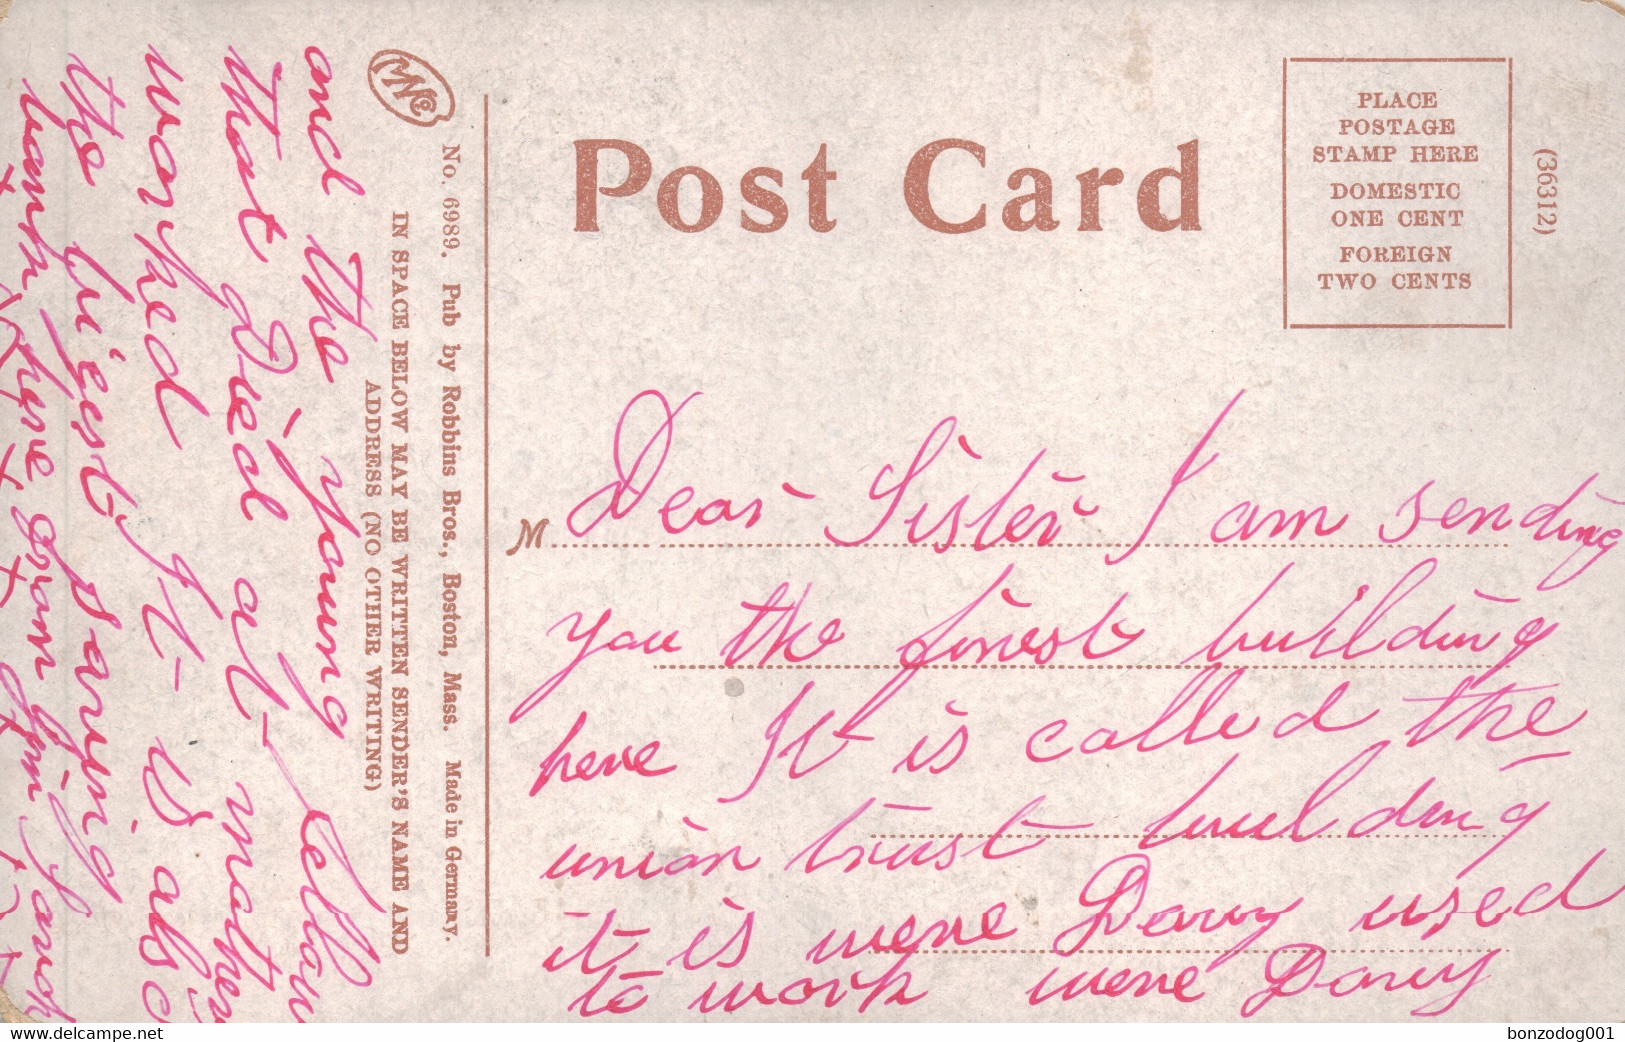 Post Card
PLACE
POSTAGE
STAMP HERE
DOMESTIC
ONE CENT
FOREIGN
TWO CENTS
(36312)
M
Dear Sister I am sending
you the finest building
here It is called the
union trust building
it is were Davy used
to work were Davy
No. 6989. Pub by Robbins Bros., Boston, Mass. Made in Germany.
IN SPACE BELOW MAY BE WRITTEN SENDER'S NAME AND
ADDRESS (NO OTHER WRITING)
and the young fellow
that Died at mothers
worked It is also
the bigest saving
bank here from
www.delcampe.net
bonzodog001